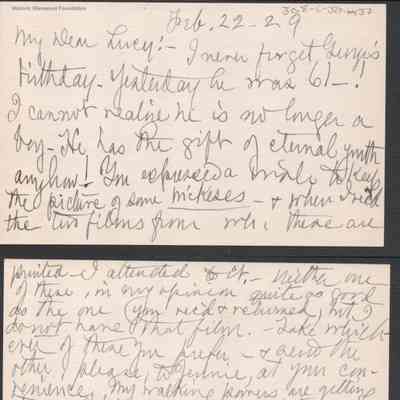 Historic Glenwood Foundation
Feb. 22 - 29
My Dear Lucy:- I never forget George's
birthday - Yesterday he was 61 -!
I cannot realize he is no longer a
boy - He has the gift of eternal youth
anyhow! You expressed a wish to keep
the picture of some McKeses - & when I rec'd
the two films from there are
printed - I attended to it. - Neither one
of these, in my opinion quite as good
as the one you rec'd & returned, but I
do not have that film. - Take which-
ever of these you prefer - & send the
other please, to Jennie, at your con-
venience, My walking powers are getting